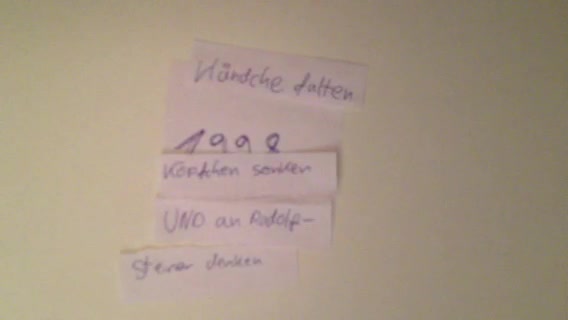 Händche falten
1998
Köpfchen senken
UND an Rudolf-
Steiner denken